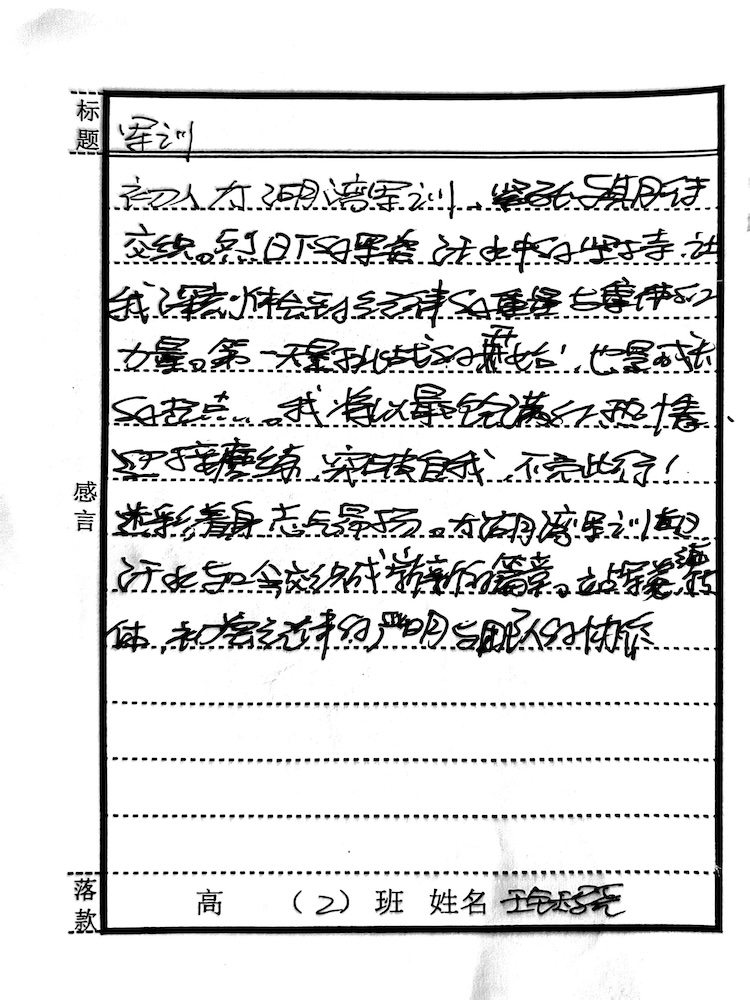 标题
军训
初入太湖湾军训、紧张与期待
交织。烈日下的军姿 汗水中的坚持 让
我深刻体会到纪律的重量与集体的
力量。第一天是挑战的开始，也是成长
的起点。我将以最饱满的热情、
迎接磨练 突破自我 不负此行！
感言
迷彩着身 志气昂扬。太湖湾军训
汗水与口令交织成崭新的篇章。站军姿
体、初尝纪律的严明与团队的协作
落款
高 （2）班 姓名